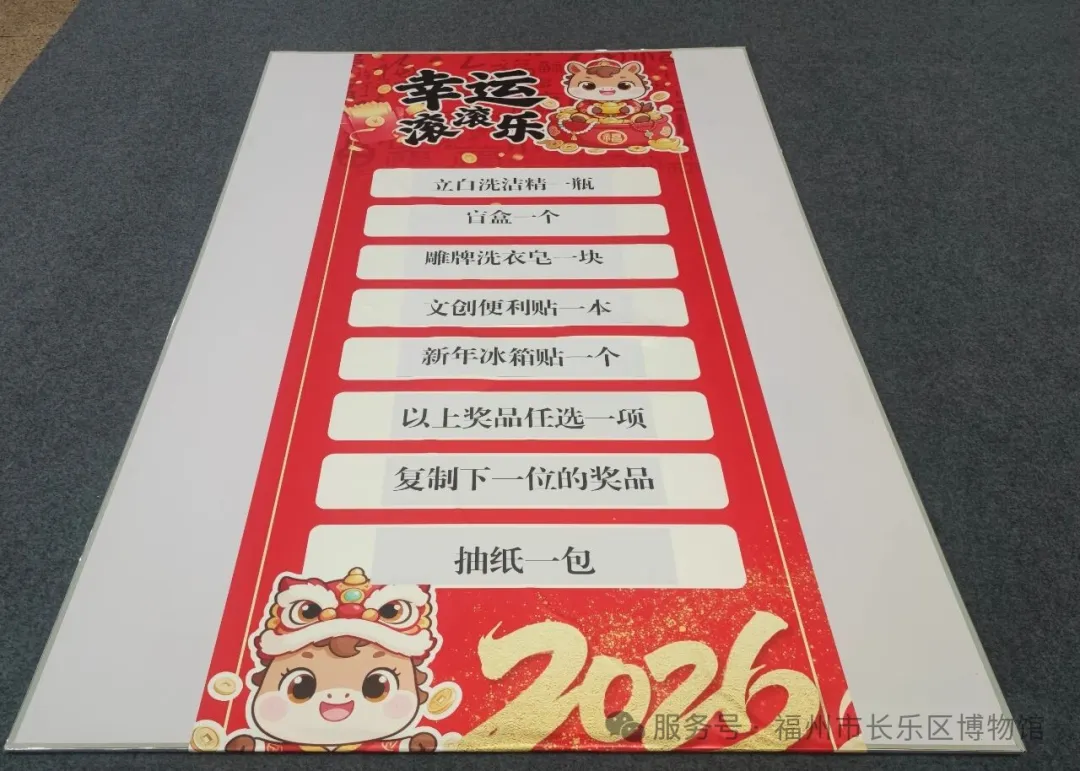 幸运
滚滚乐
福
立白洗洁精一瓶
盲盒一个
雕牌洗衣皂一块
文创便利贴一本
新年冰箱贴一个
以上奖品任选一项
复制下一位的奖品
抽纸一包
2026
服务号·福州市长乐区博物馆